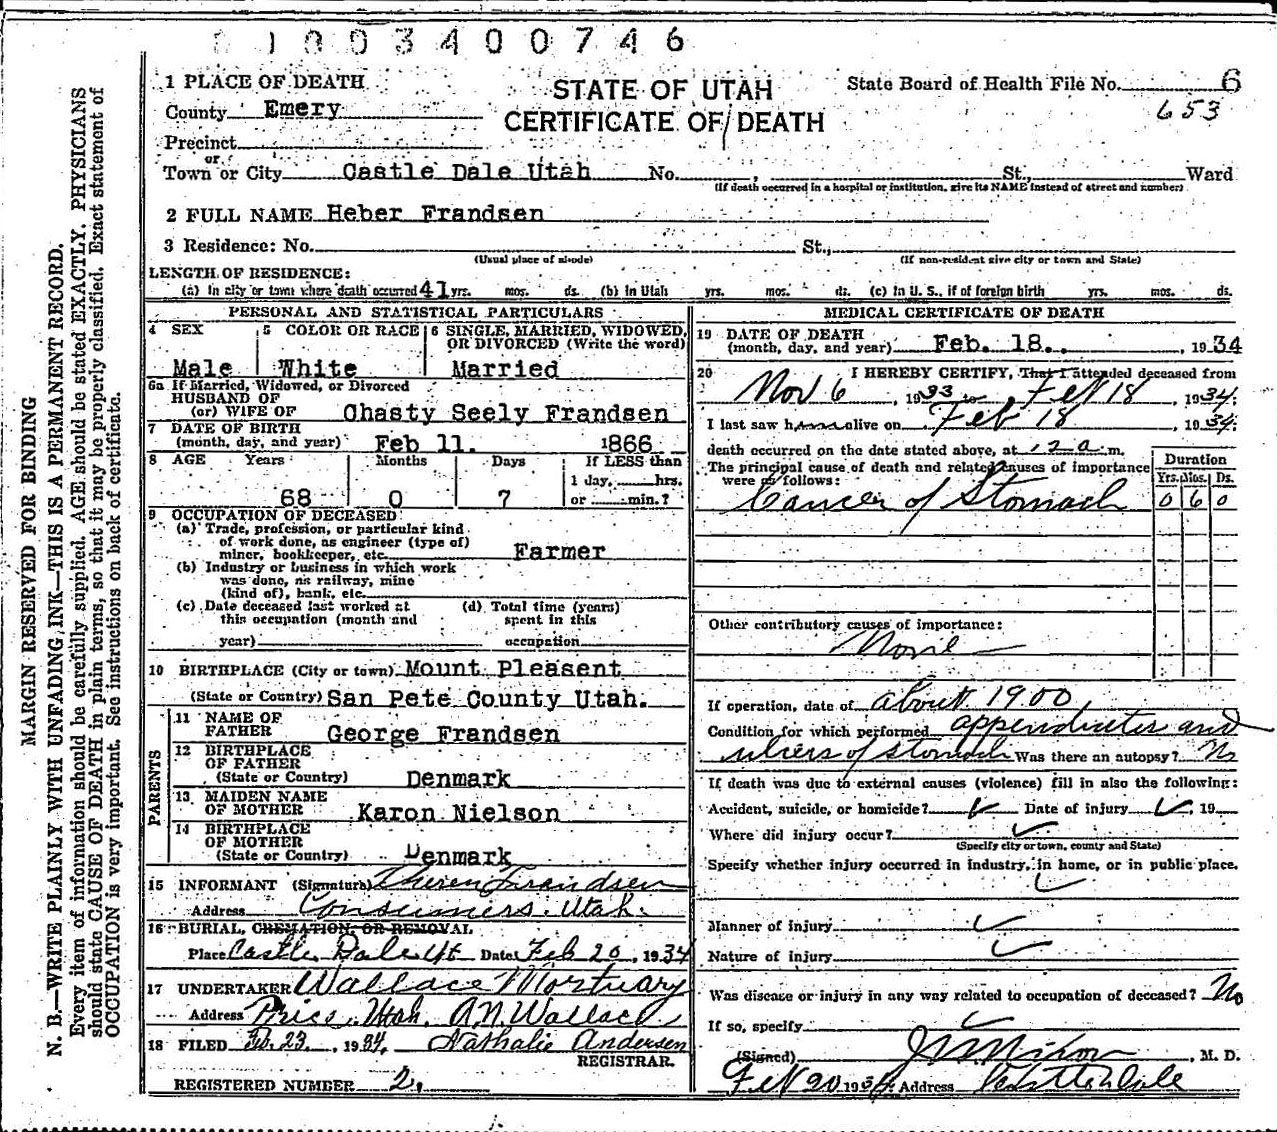 1003400746
1 PLACE OF DEATH
STATE OF UTAH
CERTIFICATE OF DEATH
State Board of Health File No. 6
653
County Emery
Precinct
or
Town or City Castle Dale Utah No. , St., Ward
(If death occurred in a hospital or institution, give its NAME instead of street and number)
2 FULL NAME Heber Frandsen
3 Residence: No. St.,
(Usual place of abode) (If non-resident give city or town and State)
LENGTH OF RESIDENCE:
(a) In city or town where death occurred 41 yrs. mos. ds. (b) In Utah yrs. mos. ds. (c) in U. S., if of foreign birth yrs. mos. ds.
PERSONAL AND STATISTICAL PARTICULARS
4 SEX 5 COLOR OR RACE 6 SINGLE, MARRIED, WIDOWED,
OR DIVORCED (Write the word)
Male White Married
6a If Married, Widowed, or Divorced
HUSBAND OF
(or) WIFE OF Chasty Seely Frandsen
7 DATE OF BIRTH
(month, day, and year) Feb 11. 1866
8 AGE Years Months Days If LESS than
1 day, hrs.
68 0 7 or min.?
9 OCCUPATION OF DECEASED
(a) Trade, profession, or particular kind
of work done, as engineer (type of)
miner, bookkeeper, etc. Farmer
(b) Industry or business in which work
was done, as railway, mine
(kind of), bank, etc.
(c) Date deceased last worked at (d) Total time (years)
this occupation (month and spent in this
year) occupation
10 BIRTHPLACE (City or town) Mount Pleasent
(State or Country) San Pete County Utah.
PARENTS
11 NAME OF
FATHER George Frandsen
12 BIRTHPLACE
OF FATHER
(State or Country) Denmark
13 MAIDEN NAME
OF MOTHER Karon Nielson
14 BIRTHPLACE
OF MOTHER
(State or Country) Denmark
15 INFORMANT (Signature) Frandsen
Address Consumers. Utah.
16 BURIAL, CREMATION, OR REMOVAL
Place Castle Dale Ut Date Feb 20, 1934
17 UNDERTAKER Wallace Mortuary
Address Price, Utah. A.N. Wallace
18 FILED Feb. 23, 1934, Nathalie Andersen
REGISTRAR.
REGISTERED NUMBER 2.
MEDICAL CERTIFICATE OF DEATH
19 DATE OF DEATH
(month, day, and year) Feb. 18. , 1934
20 I HEREBY CERTIFY, That I attended deceased from
Nov 6, 1933 to Feb 18, 1934.
I last saw him alive on Feb 18 1934.
death occurred on the date stated above, at 12 a m.
The principal cause of death and related causes of importance
were as follows:
Duration
Yrs. Mos. Ds.
Cancer of Stomach 0 6 0
Other contributory causes of importance:
None
If operation, date of about 1900
Condition for which performed appendicites and
ulcers of stomach Was there an autopsy? No
If death was due to external causes (violence) fill in also the following:
Accident, suicide, or homicide? Date of injury 19
Where did injury occur?
(Specify city or town, county and State)
Specify whether injury occurred in industry, in home, or in public place.
Manner of injury
Nature of injury
Was disease or injury in any way related to occupation of deceased? No
If so, specify
(Signed) Nixon, M. D.
Feb 20 1934. Address Castle Dale
MARGIN RESERVED FOR BINDING
N. B.—WRITE PLAINLY WITH UNFADING INK—THIS IS A PERMANENT RECORD.
Every item of information should be carefully supplied. AGE should be stated EXACTLY. PHYSICIANS
should state CAUSE OF DEATH in plain terms, so that it may be properly classified. Exact statement of
OCCUPATION is very important. See instructions on back of certificate.